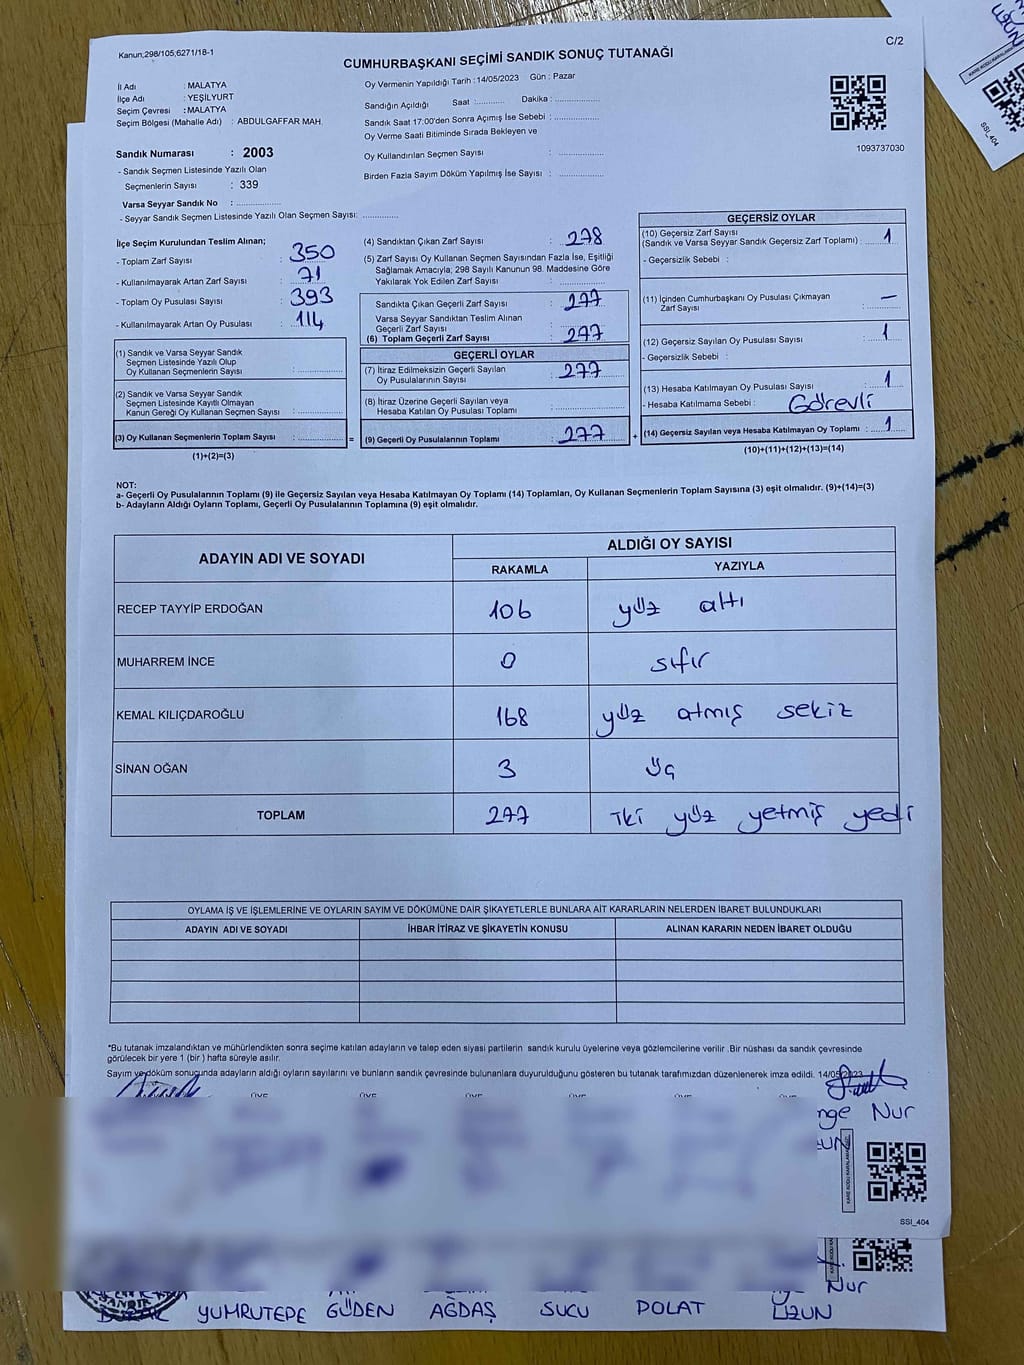 Kanun;298/105,6271/18-1
C/2
CUMHURBAŞKANI SEÇİMİ SANDIK SONUÇ TUTANAĞI
İl Adı : MALATYA
İlçe Adı : YEŞİLYURT
Seçim Çevresi : MALATYA
Seçim Bölgesi (Mahalle Adı) : ABDULGAFFAR MAH.
Oy Vermenin Yapıldığı Tarih : 14/05/2023 Gün : Pazar
Sandığın Açıldığı Saat :.......... Dakika : ..................
Sandık Saat 17:00'den Sonra Açımış İse Sebebi : ..................
Oy Verme Saati Bitiminde Sırada Bekleyen ve
Oy Kullandırılan Seçmen Sayısı : ..................
Birden Fazla Sayım Döküm Yapılmış İse Sayısı : ..................
1093737030
Sandık Numarası : 2003
- Sandık Seçmen Listesinde Yazılı Olan
Seçmenlerin Sayısı : 339
Varsa Seyyar Sandık No : ..................
- Seyyar Sandık Seçmen Listesinde Yazılı Olan Seçmen Sayısı: ..............
İlçe Seçim Kurulundan Teslim Alınan;
- Toplam Zarf Sayısı : 350
- Kullanılmayarak Artan Zarf Sayısı : 71
- Toplam Oy Pusulası Sayısı : 393
- Kullanılmayarak Artan Oy Pusulası : 114
(1) Sandık ve Varsa Seyyar Sandık
Seçmen Listesinde Yazılı Olup
Oy Kullanan Seçmenlerin Sayısı : ..................
(2) Sandık ve Varsa Seyyar Sandık
Seçmen Listesinde Kayıtlı Olmayan
Kanun Gereği Oy Kullanan Seçmen Sayısı : ..................
(3) Oy Kullanan Seçmenlerin Toplam Sayısı : .................. =
(1)+(2)=(3)
(4) Sandıktan Çıkan Zarf Sayısı : 278
(5) Zarf Sayısı Oy Kullanan Seçmen Sayısından Fazla İse, Eşitliği
Sağlamak Amacıyla; 298 Sayılı Kanunun 98. Maddesine Göre
Yakılarak Yok Edilen Zarf Sayısı : ..................
Sandıkta Çıkan Geçerli Zarf Sayısı : 277
Varsa Seyyar Sandıktan Teslim Alınan
Geçerli Zarf Sayısı : ..................
(6) Toplam Geçerli Zarf Sayısı : 277
GEÇERLİ OYLAR
(7) İtiraz Edilmeksizin Geçerli Sayılan
Oy Pusulalarının Sayısı : 277
(8) İtiraz Üzerine Geçerli Sayılan veya
Hesaba Katılan Oy Pusulası Toplamı : ..................
(9) Geçerli Oy Pusulalarının Toplamı : 277 +
GEÇERSİZ OYLAR
(10) Geçersiz Zarf Sayısı
(Sandık ve Varsa Seyyar Sandık Geçersiz Zarf Toplamı) : 1
- Geçersizlik Sebebi :
(11) İçinden Cumhurbaşkanı Oy Pusulası Çıkmayan
Zarf Sayısı : —
(12) Geçersiz Sayılan Oy Pusulası Sayısı : 1
- Geçersizlik Sebebi :
(13) Hesaba Katılmayan Oy Pusulası Sayısı : 1
- Hesaba Katılmama Sebebi : Görevli
(14) Geçersiz Sayılan veya Hesaba Katılmayan Oy Toplamı : 1
(10)+(11)+(12)+(13)=(14)
NOT:
a- Geçerli Oy Pusulalarının Toplamı (9) ile Geçersiz Sayılan veya Hesaba Katılmayan Oy Toplamı (14) Toplamları, Oy Kullanan Seçmenlerin Toplam Sayısına (3) eşit olmalıdır. (9)+(14)=(3)
b- Adayların Aldığı Oyların Toplamı, Geçerli Oy Pusulalarının Toplamına (9) eşit olmalıdır.
ADAYIN ADI VE SOYADI ALDIĞI OY SAYISI
RAKAMLA YAZIYLA
RECEP TAYYİP ERDOĞAN 106 yüz altı
MUHARREM İNCE 0 sıfır
KEMAL KILIÇDAROĞLU 168 yüz atmış sekiz
SİNAN OĞAN 3 üç
TOPLAM 277 iki yüz yetmiş yedi
OYLAMA İŞ VE İŞLEMLERİNE VE OYLARIN SAYIM VE DÖKÜMÜNE DAİR ŞİKAYETLERLE BUNLARA AİT KARARLARIN NELERDEN İBARET BULUNDUKLARI
ADAYIN ADI VE SOYADI İHBAR İTİRAZ VE ŞİKAYETİN KONUSU ALINAN KARARIN NEDEN İBARET OLDUĞU
*Bu tutanak imzalandıktan ve mühürlendikten sonra seçime katılan adayların ve talep eden siyasi partilerin sandık kurulu üyelerine veya gözlemcilerine verilir .Bir nüshası da sandık çevresinde
görülecek bir yere 1 (bir ) hafta süreyle asılır.
Sayım ve döküm sonucunda adayların aldığı oyların sayılarını ve bunların sandık çevresinde bulunanlara duyurulduğunu gösteren bu tutanak tarafımızdan düzenlenerek imza edildi. 14/05/2023
Nur
SSI_404
Nur
YUMRUTEPE GÜDEN AĞDAŞ SUCU POLAT UZUN
UZUN
SSI_404